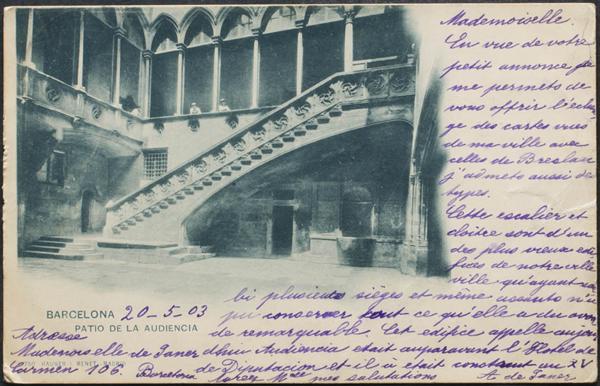 Mademoiselle.
En vue de votre
petit annonce je
me permets de
vous offrir l'échan
ge des cartes vues
de ma ville avec
celles de Breslau
j'admets aussi des
types.
Cette escalier et
cloitre sont d'un
des plus vieux edi
fices de notre ville
ville qu'ayant su
bi plusieurs sièges et même assauts n'a
pu conserver tout ce qu'elle a du avoir
de remarquable. Cet edifice appelle aujour
d'hui Audiencia était auparavant l'Hotel de
Deputacion et il à était construit au XV
Mes salutations
A. de Janer
BARCELONA 20-5-03
PATIO DE LA AUDIENCIA
Adresse
Mademoiselle de Janer
Carmen 106. Barcelona